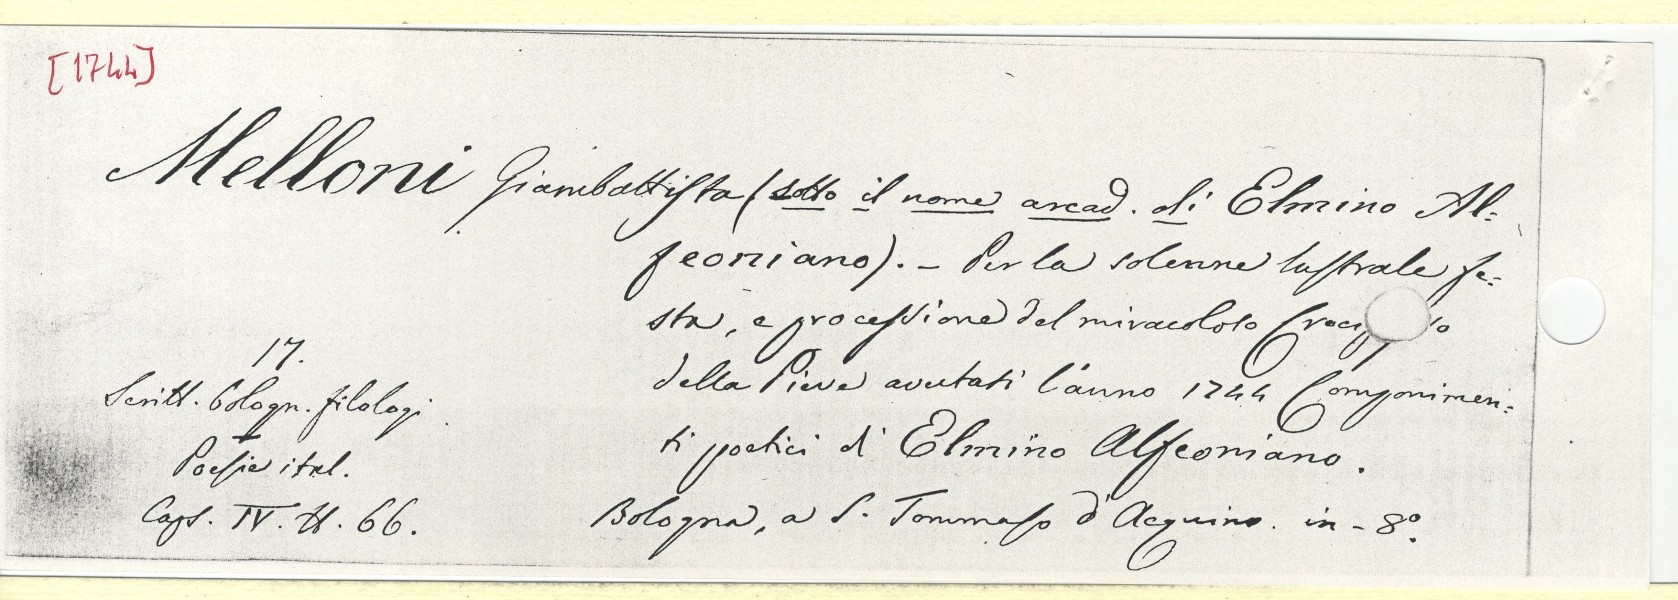 [1744]
Melloni Giambattista (sotto il nome arcad. di Elmino Al-
feoniano). - Per la solenne lustrale fe-
sta, e processione del miracoloso
della Pieve l'anno 1744 Componimen-
ti poetici di Elmino Alfeoniano.
Bologna, a S. Tommaso d'Acquino. in-8º.
17.
Scritt. bologn. filologi
Poesie ital.
Caps. IV. N. 66.